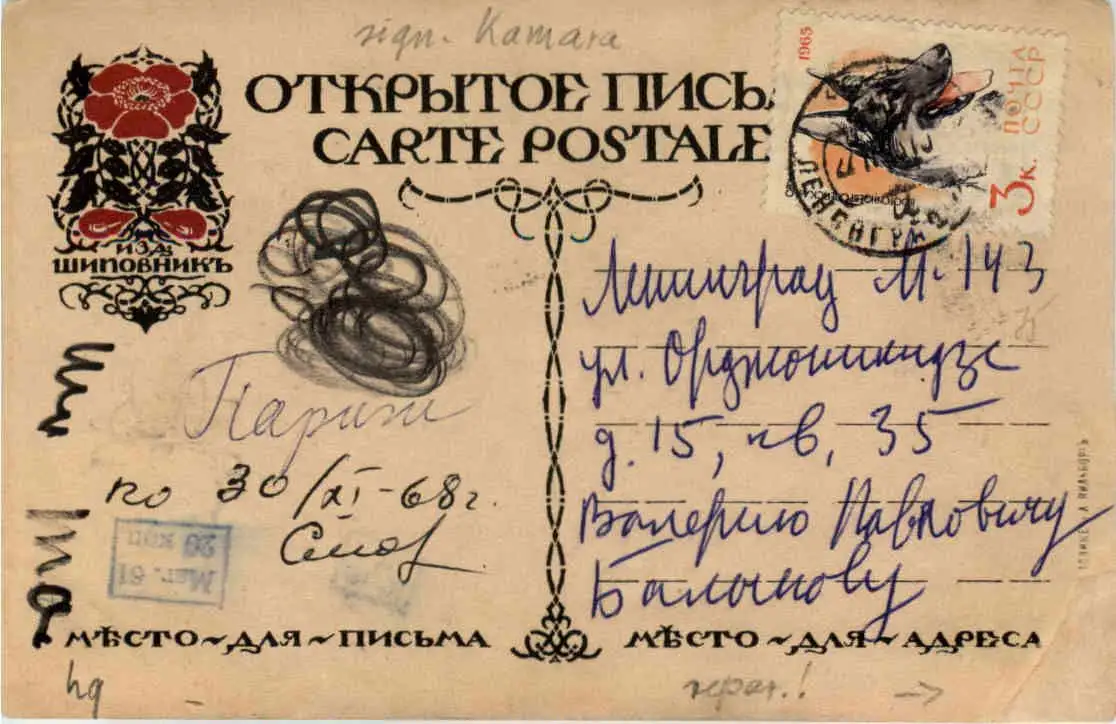 sign. Kamara
ОТКРЫТОЕ ПИСЬ
CARTE POSTALE
ИЗД.
ШИПОВНИКЪ
1965
ПОЧТА
СССР
3к.
Ленинград М-143
ул. Орджоникидзе
д. 15, кв. 35
Валерию Павловичу
Париж
по 30/XI-68 г.
Маг. 61
20 коп
МѢСТО~ДЛЯ~ПИСЬМА
МѢСТО~ДЛЯ~АДРЕСА